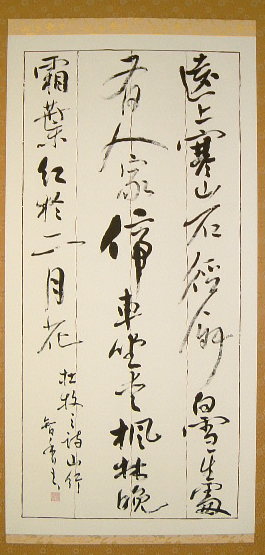 遠上寒山石徑斜白雲生處
有人家停車坐愛楓林晚
霜葉紅於二月花
杜牧之詩山行